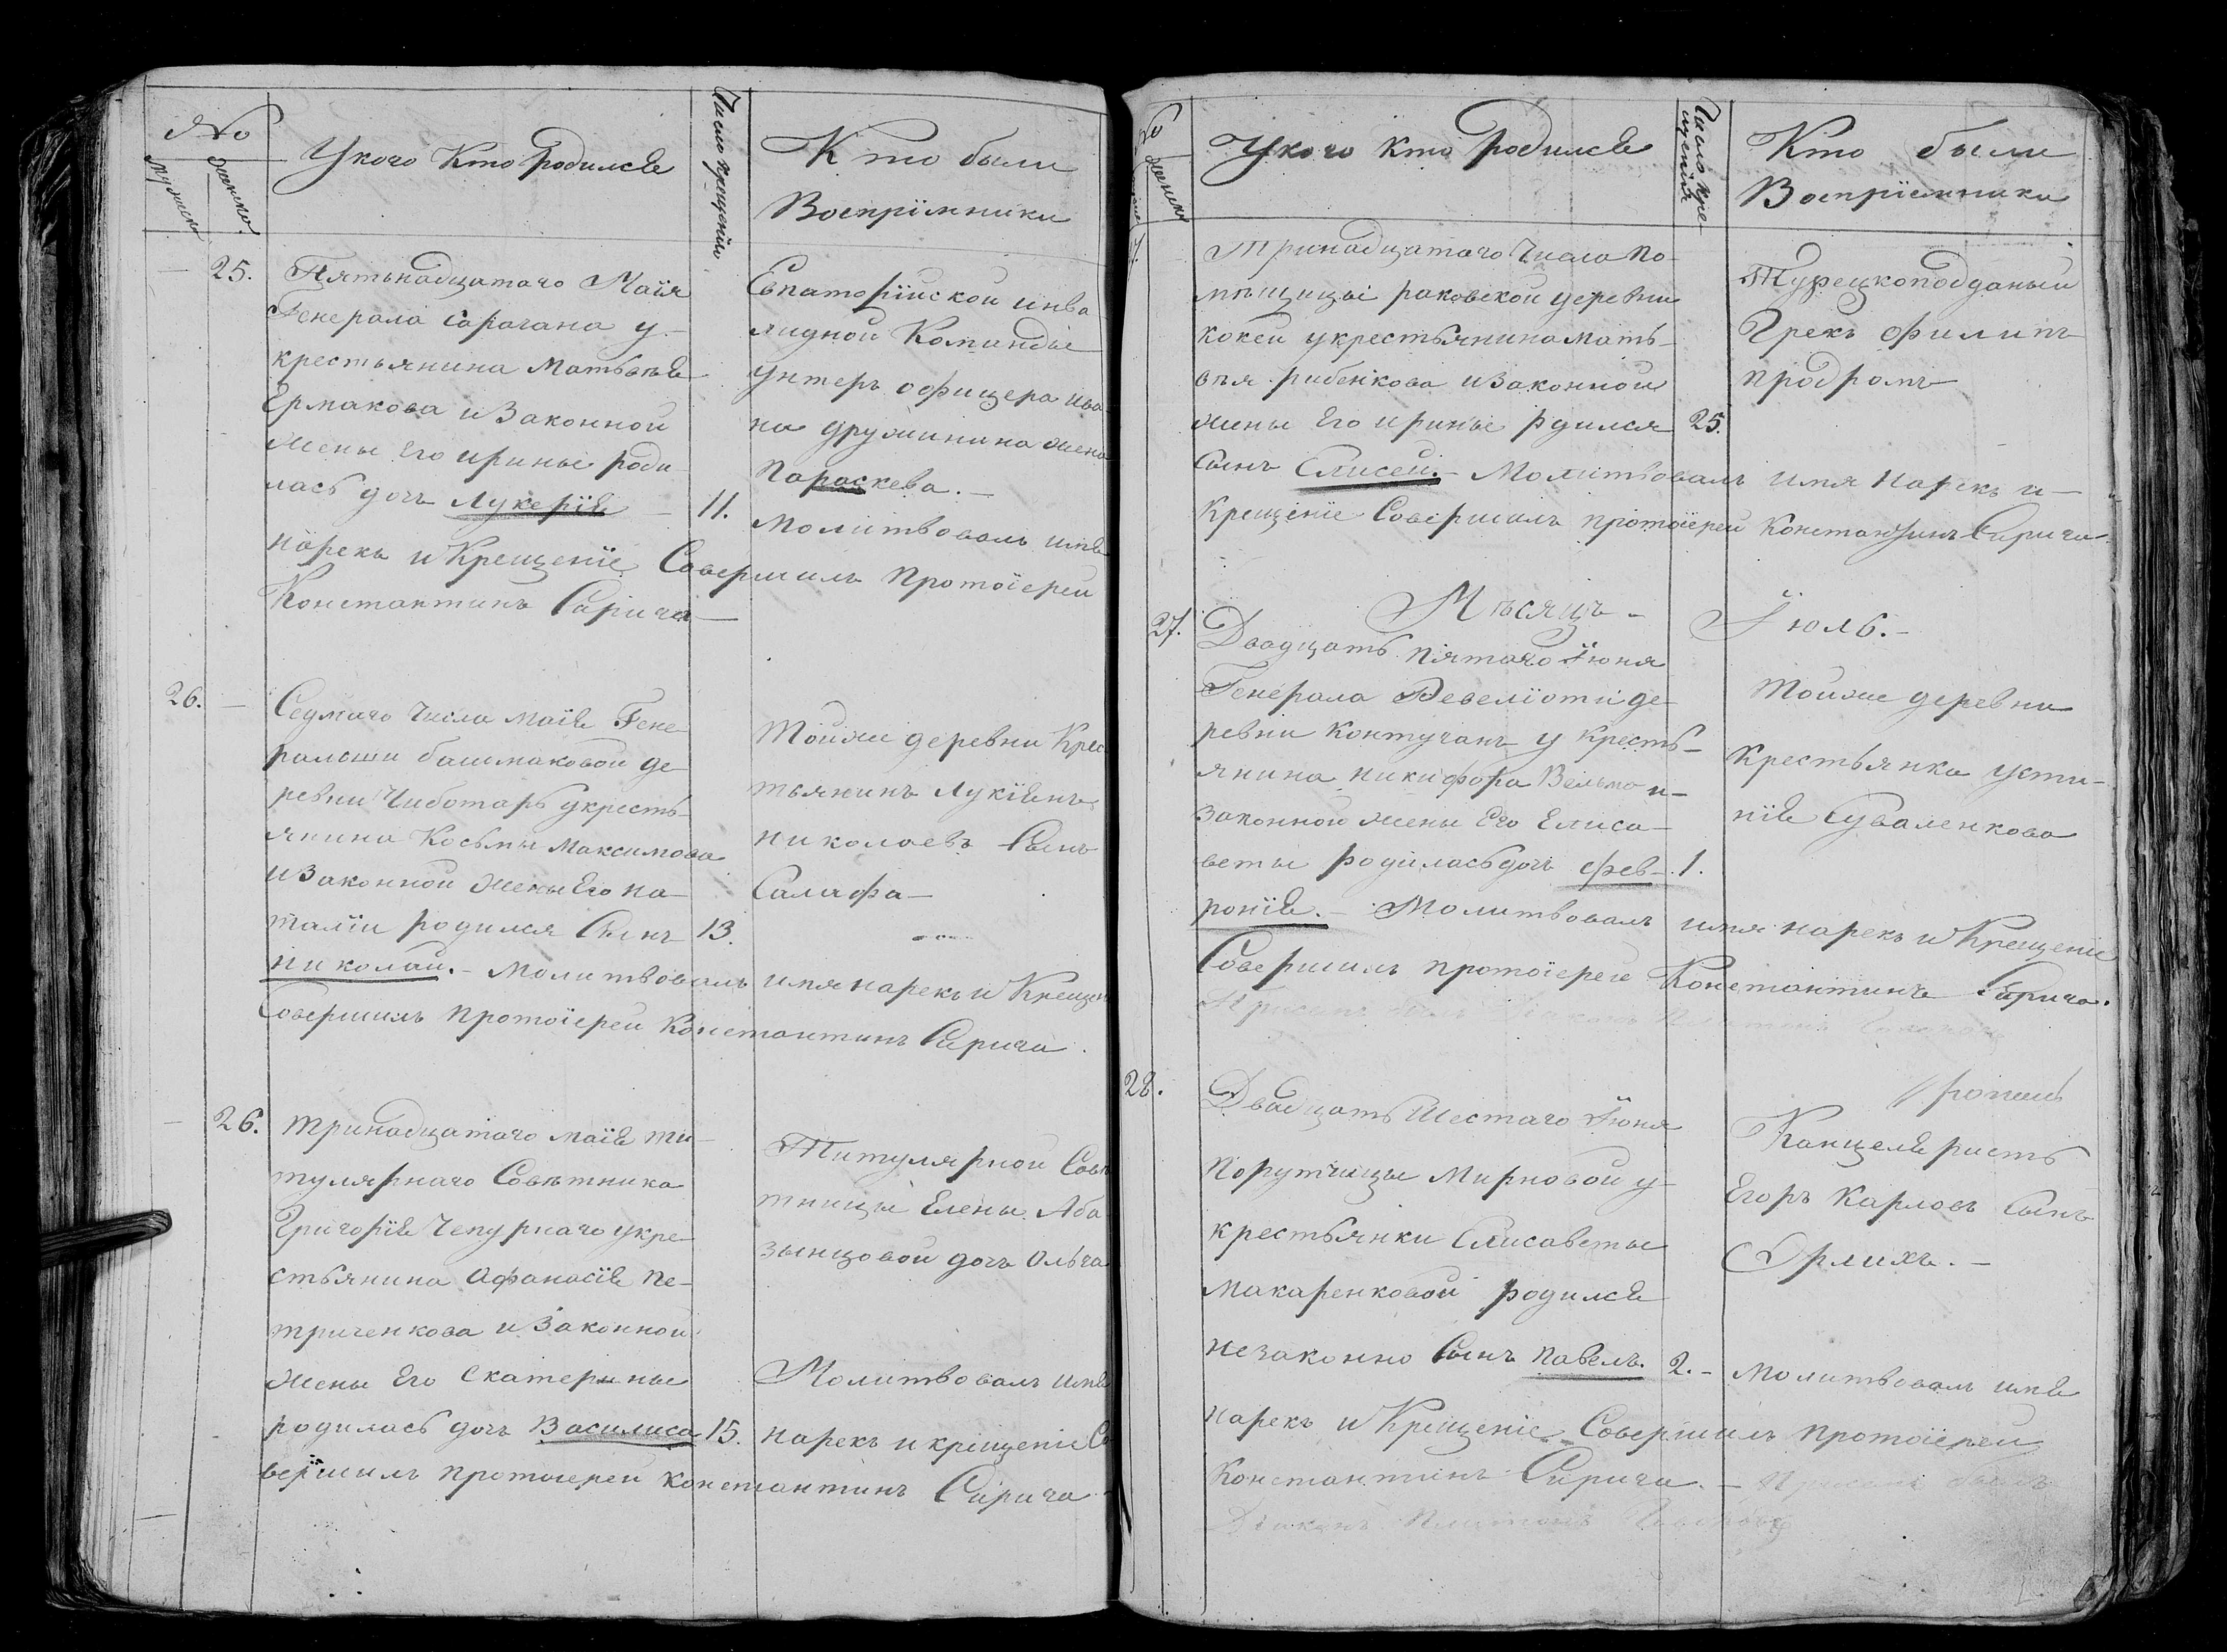 №
мужеска
женска
У кого Кто родился
Число крещенія
Кто были
Воспріимники
25.
Пятьнадцатаго Маія
Генерала Сарачана у
крестьянина Матьвѣя
Ермакова и Законной
жены Его Ирины роди
лась дочь Лукерія
11.
Евпаторійской инва
лидной Команды
унтеръ офицера ива
на дружинина жена
Параскева.
Молитвовалъ имя
нарекъ и Крещеніе Совершилъ Протоіерей
Константинъ Сирича
26.
Седмаго Числа маія Гене
ральши башмаковой де
ревни Чиботарь укресть
янина Косьмы Максимова
и Законной жены Его На
таліи родился Сынъ
13.
Тойже деревни Крес
тьянинъ Лукіянъ
николаевъ Сынъ
Салифа
николай. - молитвовалъ имя нарекъ и Крещен
Совершилъ Протоіерей Константинъ Сирича.
26.
тринадцатаго маія ти
тулярнаго Совѣтника
Григорія Чепурнаго укре
стьянина Афанасія Пе-
триченкова и Законной
жены Его Екатерины
родилась дочь Василиса
15.
Титулярной Совѣ
тницы Елены Аба
зынцовой дочь Ольга
Молитвовалъ имя
нарекъ и крещеніе Со
вершилъ протоіерей константинъ Сирича
№
женска
У кого кто родился
Число кре-
щенія
Кто были
Воспріемники
Тринадцатаго Числа по-
мѣщицы раковской деревни
кокеи укрестьянина мать-
вѣя рибенкова и Законной
жены Его ирины рдился
25.
Турецкоподданый
Грекъ Филипъ
продромъ
сынъ Елисей. - Молитвовалъ имя нарекъ и
Крещеніе Совершилъ протоіерей Константинъ Сирича.
Мѣсяцъ - Іюль. -
27.
Двадцать пятаго Іюня
Генерала Ревеліоти де-
ревни Контуганъ у кресть-
янина никифора Вельмо и
законной жены Его Елиса-
веты родилась дочь фев-
1.
Тойже деревни
Крестьянка усти-
нія Суваленкова
ронія. - Молитвовалъ имя нарекъ и Крещеніе
Совершилъ протоіерей Константинъ Сирича.
28.
Двадцать Шестаго Іюня
Порутчицы Мирновой у
крестьянки Елисаветы
Макаренковой родился
незаконно Сынъ Павелъ.
2. -
Канцеляристъ
Егоръ Карловъ Сынъ
Орлихъ. -
Молитвовалъ имя
нарекъ и Крещеніе Совершилъ протоіерей
Константинъ Сирича. -